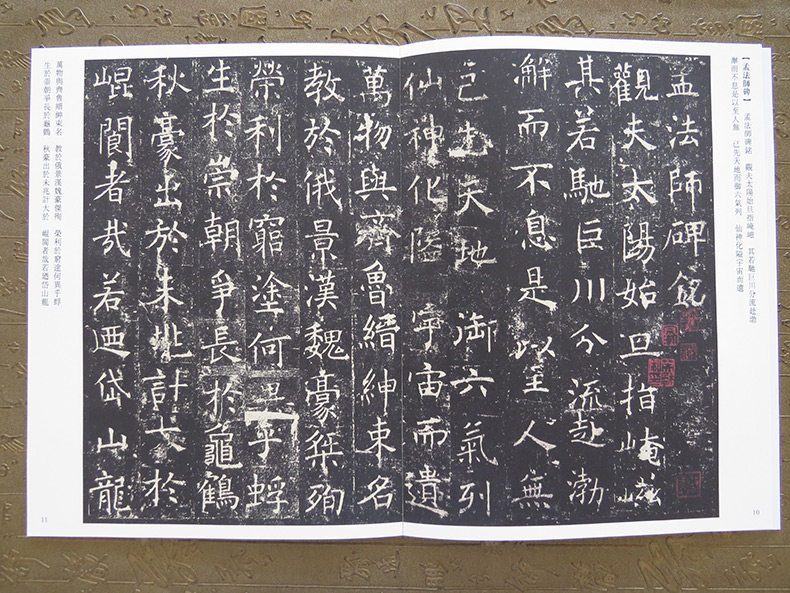 【孟法師碑】 孟法師碑銘 觀夫太陽始旦指崦嵫 其若馳巨川分流赴渤
澥而不息是以至人無 己先天地而御六氣列 仙神化隘宇宙而遺
孟法師碑銘
觀夫太陽始旦指崦嵫
其若馳巨川分流赴渤
澥而不息是以至人無
己先天地 御六氣列
仙神化隘 宇宙而遺
萬物與齊魯縉紳束名
教於俄景漢魏豪桀殉
榮利於窮塗何異乎蜉
生於崇朝爭長於龜鶴
秋豪出於未兆計大於
崐閬者哉若迺岱山龍
萬物與齊魯縉紳束名 教於俄景漢魏豪傑殉 榮利於窮途何異乎蜉
生於崇朝爭長於龜鶴 秋豪出於未兆計大於 崐閬者哉若迺岱山龍
10
11